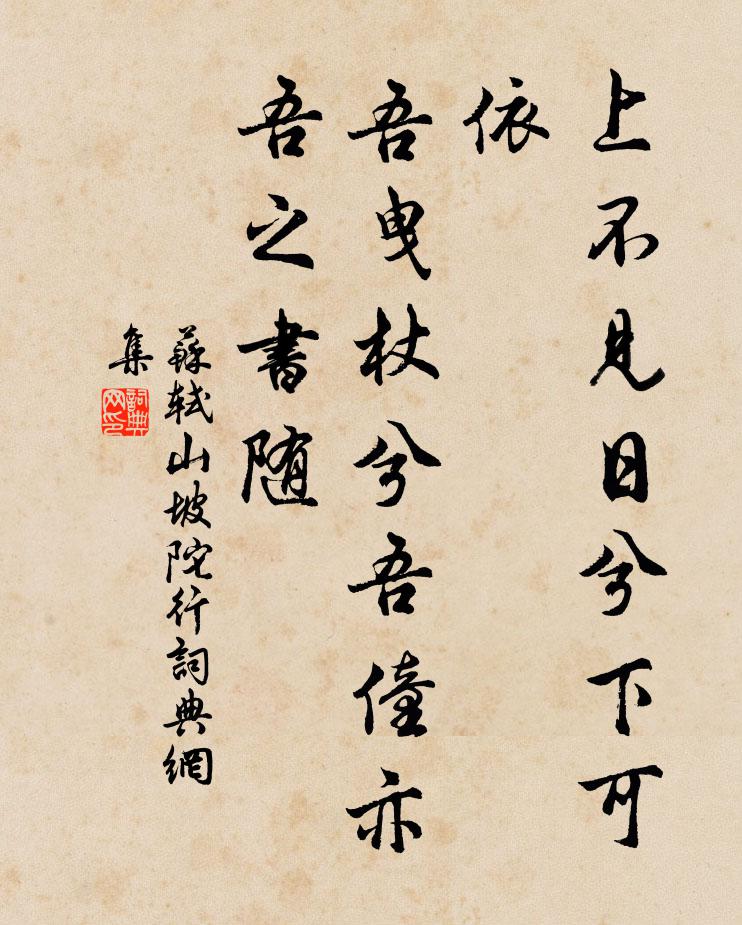 上不見日兮下可
依
吾曳杖兮吾僮亦
吾之書随
蘇軾山坡陀行詞典網
集
詞典
网印